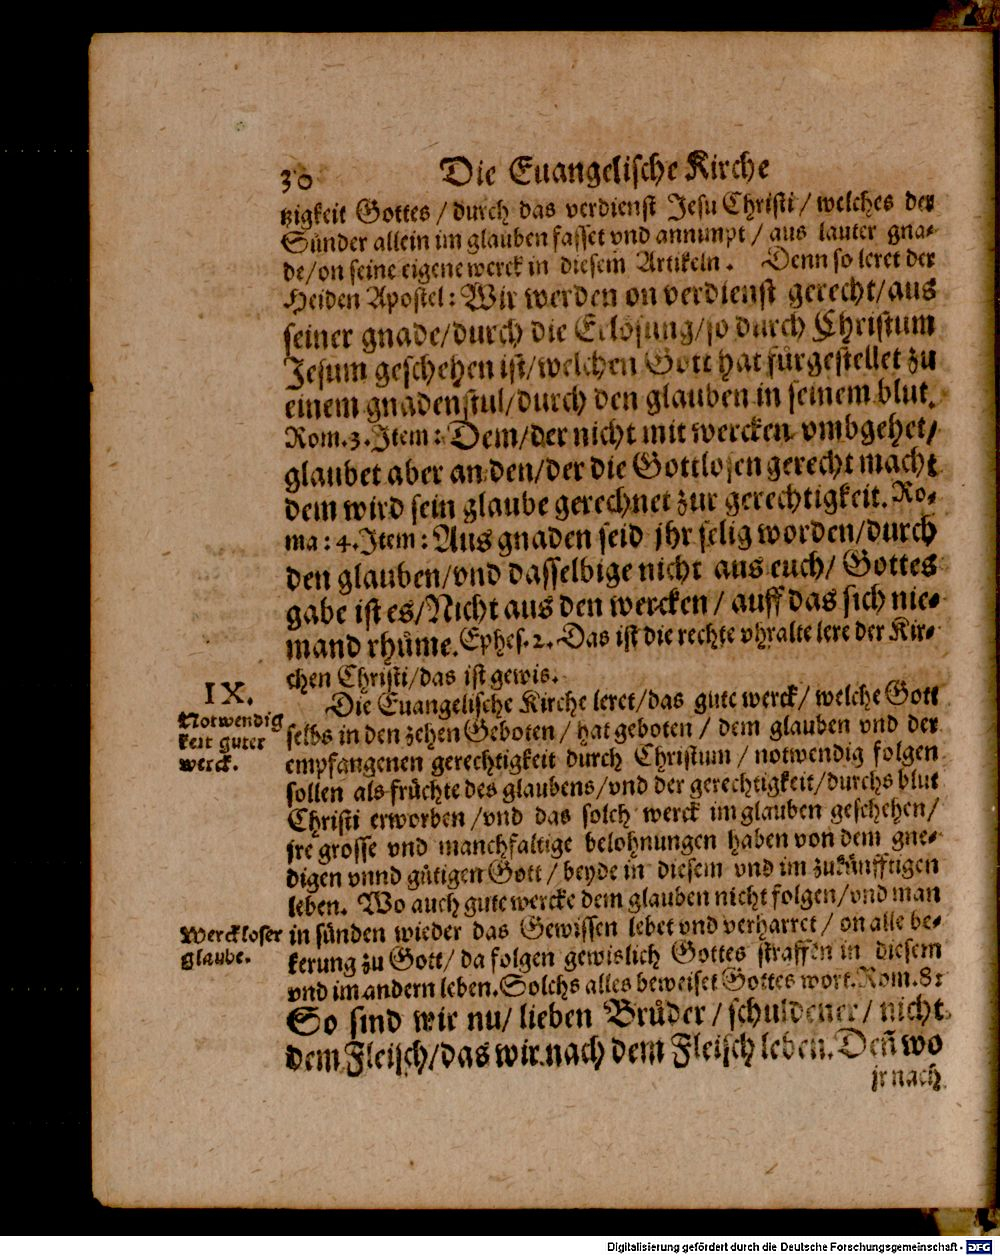 30 Die Euangelische Kirche
tzigkeit Gottes / durch das verdienst Jesu Christi / welches der
Sünder allein im glauben fasset vnd annimpt / aus lauter gna-
de/on seine eigene werck in diesem Artikeln. Denn so leret der
Heiden Apostel: Wir werden on verdienst gerecht/aus
seiner gnade/durch die Erlösung/so durch Christum
Jesum geschehen ist/welchen Gott hat fürgestellet zu
einem gnadenstul/durch den glauben in seinem blut.
Rom.3.Item: Dem/der nicht mit wercken vmbgehet/
glaubet aber an den/der die Gottlosen gerecht macht
dem wird sein glaube gerechnet zur gerechtigkeit. Ro-
ma: 4.Item: Aus gnaden seid jhr selig worden/durch
den glauben/vnd dasselbige nicht aus euch/ Gottes
gabe ist es/Nicht aus den wercken / auff das sich nie-
mand rhüme. Ephes.2. Das ist die rechte vhralte lere der Kir-
chen Christi/das ist gewis.
IX.
Notwendig
keit guter
werck.
Die Euangelische Kirche leret/das gute werck/ welche Gott
selbs in den zehen Geboten / hat geboten / dem glauben vnd der
empfangenen gerechtigkeit durch Christum / notwendig folgen
sollen als früchte des glaubens/vnd der gerechtigkeit/durchs blut
Christi erworben /vnd das solch werck im glauben geschehen/
jre grosse vnd manchfaltige belohnungen haben von dem gne-
digen vnnd gütigen Gott / beyde in diesem vnd im zukünfftigen
leben. Wo auch gute wercke dem glauben nicht folgen/vnd man
Werckloser
glaube.
in sünden wieder das Gewissen lebet vnd verharret / on alle be-
kerung zu Gott/ da folgen gewislich Gottes straffen in diesem
vnd im andern leben. Solchs alles beweiset Gottes wort. Rom.8:
So sind wir nu/ lieben Brüder / schuldener / nicht
dem Fleisch/das wir nach dem Fleisch leben. Deñ wo
jr nach
Digitalisierung gefördert durch die Deutsche Forschungsgemeinschaft - DFG